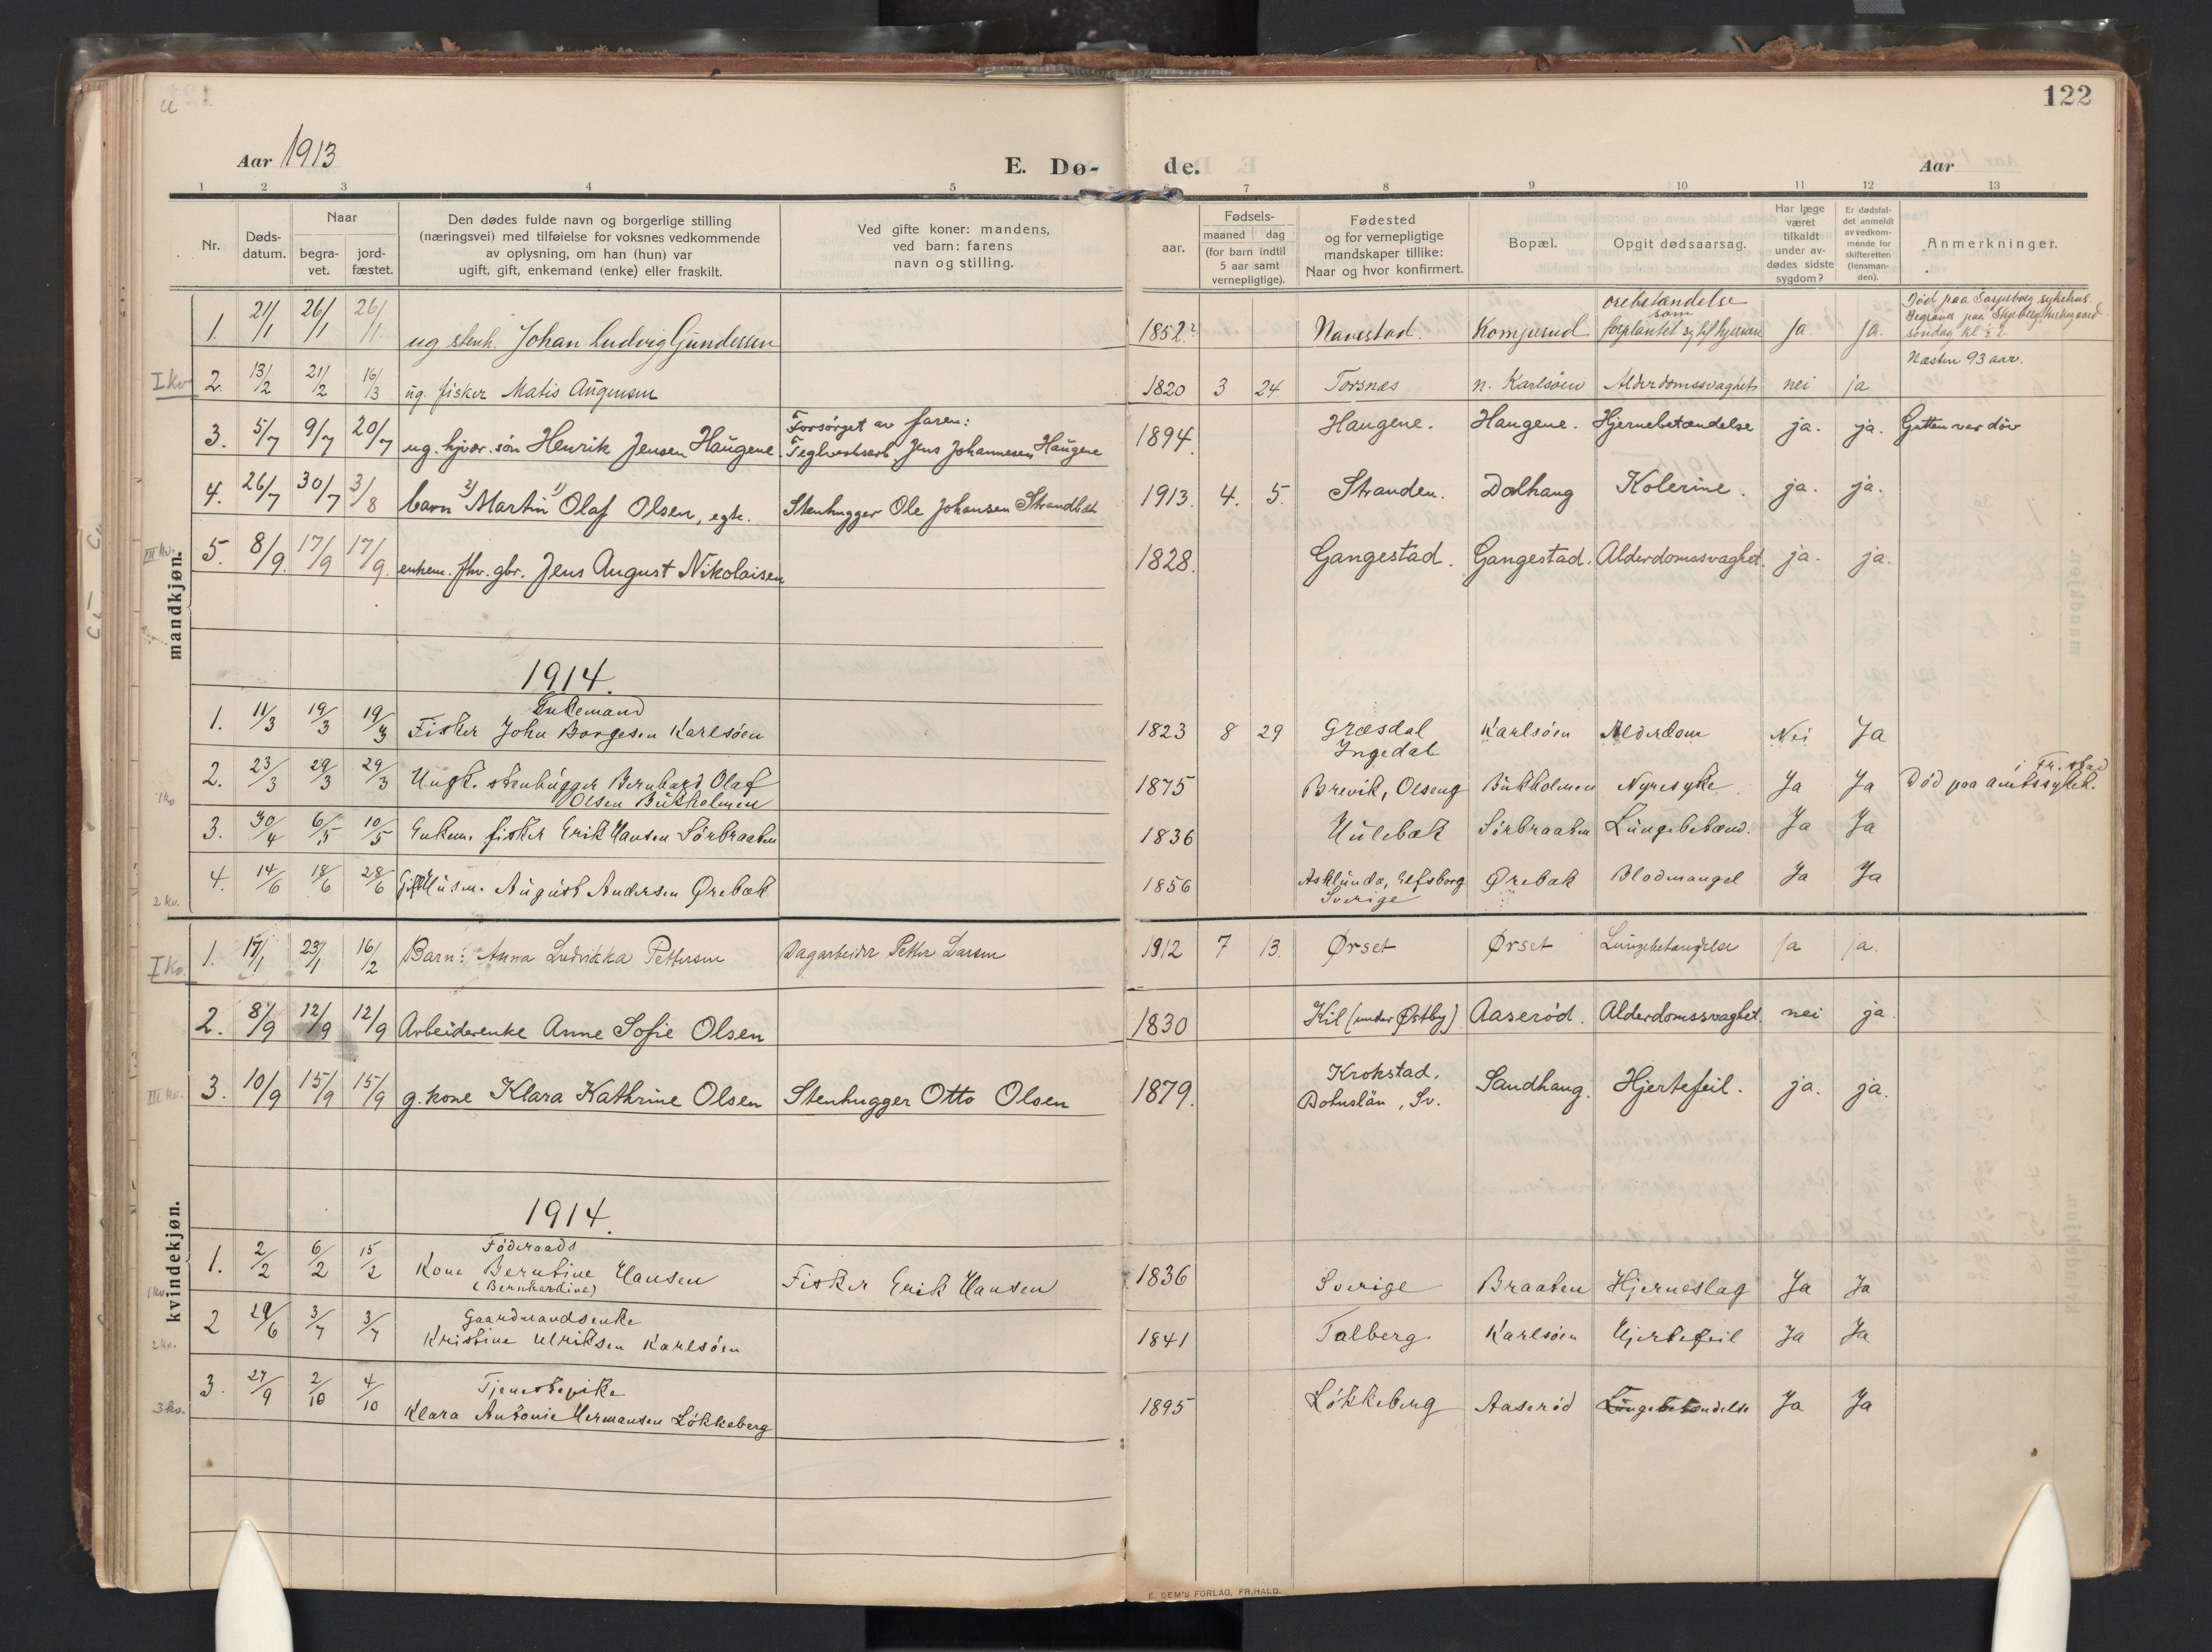 122
Aar 1913
E. Dø- de.
Aar
1 2 3 4 5 6 7 8 9 10 11 12 13
Nr.
Døds-
datum.
Naar
begra-
vet.
jord-
fæstet.
Den dødes fulde navn og borgerlige stilling
(næringsvei) med tilføielse for voksnes vedkommende
av oplysning, om han (hun) var
ugift, gift, enkemand (enke) eller fraskilt.
Ved gifte koner: mandens,
ved barn: farens
navn og stilling.
aar.
Fødsels-
maaned dag
(for barn indtil
5 aar samt
vernepligtige).
Fødested
og for vernepligtige
mandskaper tillike:
Naar og hvor konfirmert.
Bopæl.
Opgit dødsaarsag.
Har læge
været
tilkaldt
under av-
dødes sidste
sygdom?
Er dødsfal-
det anmeldt
av vedkom-
mende for
skifteretten
(lensman-
den).
Anmerkninger.
mandkjøn.
1. 21/1 26/1 26/1. ug. stenh. Johan Ludvig Gundersen 1852? Navestad. Kompørud ørebetændelse som forplantet sig til hjernen ja ja. Død paa Sarpsborg sykehus. Begraves paa Skjeberg kirkegaard søndag kl ½ 2.
I kv 2. 13/2 21/2 16/3 ug. fisker Matis Augensen 1820 3 24. Torsnæs n. Karlsøen Alderdomssvaghet nei ja Næsten 93 aar.
3. 5/7 9/7 20/7 ug. hjvær. søn Henrik Jensen Haugene. Forsørget av faren: Teglverksarb. Jens Johannesen Haugene 1894. Haugene. Haugene. Hjernebetændelse ja. ja. Gutten var døv
4. 26/7 30/7 3/8 barn 2) Martin 1) Olaf Olsen, egte. Stenhugger Ole Johansen 1913. 4. 5. Stranden. Dalhaug Kolerine. ja. ja.
III kv. 5. 8/9. 17/9 17/9. enkem. fhv. gbr. Jens August Nikolaisen 1828. Gangestad. Gangestad. Alderdomssvaghet. ja. ja.
1914.
1. 11/3 19/3 19/3 Enkemand Fisker John Borgesen Karlsøen 1823 8 29 Græsdal Ingedal Karlsøen Alderdom Nei Ja
1 kv 2. 23/3 29/3 29/3 Ungk. stenhugger Bernhard Olaf Olsen Bukholmen 1875 Brevik, Olseng Bukholmen Nyresyke. Ja Ja Død paa amtssykeh. i Fr.stad
3. 30/4 6/5 10/5 Enkem. fisker Erik Hansen Sörbraaten 1836 Hulebæk Sörbraaten Lungebetænd. Ja Ja
2 kv. 4. 14/6 18/6 28/6 Gift Husm. August Andersen Ørebæk 1856 Asklunda, Elfsborg Sverige Ørebæk Blodmangel Ja Ja
kvindekjøn.
I kv. 1. 17/1 23/1 16/2 Barn: Anna Ludvikka Pettersen Dagarbeider Petter Larsen 1912 7 13. Ørset Ørset Lungebetændelse Ja ja.
2. 8/9 12/9 12/9 Arbeiderenke Anne Sofie Olsen 1830 Kil (under Østby) Aaserød. Alderdomssvaghet. nei ja
III kv. 3. 10/9 15/9 15/9 g. kone Klara Kathrine Olsen Stenhugger Otto Olsen 1879. Krokstad, Bohuslän, Sv. Sandhaug. Hjertefeil. ja. ja.
1914.
1 kv. 1. 2/2 6/2 15/2 Föderaads Kone Berntine Hansen (Bernhardine) Fisker Erik Hansen 1836 Sverige Braaten Hjerneslag Ja Ja
2 kv. 2 29/6 3/7 3/7 Gaardmandsenke Kristine Ulriksen Karlsöen 1841 Talberg Karlsöen Hjertefeil Ja Ja
3 kv. 3. 27/9 2/10 4/10 Tjenestepike Klara Antonie Hermansen Lökkeberg 1895 Lökkeberg Aaseröd Lungebetændelse Ja Ja
E. SEM'S FORLAG, FR.HALD.